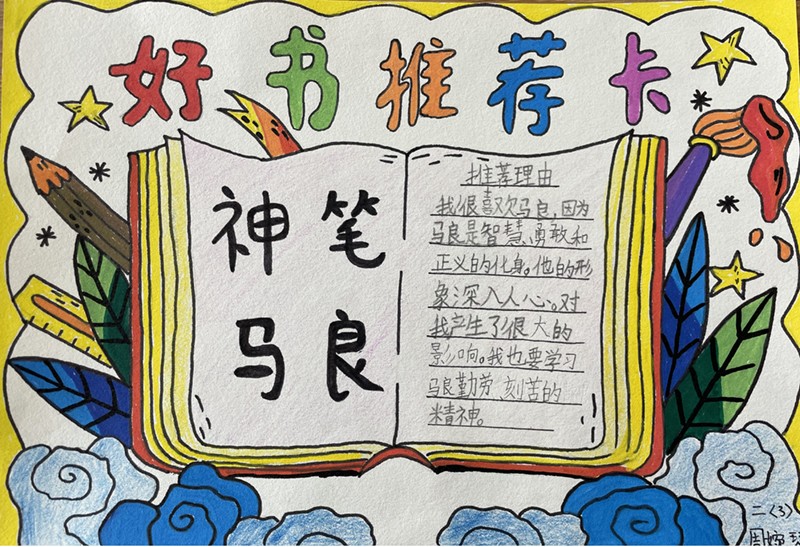 好书推荐卡
神笔
马良
推荐理由
我很喜欢马良,因为
马良是智慧、勇敢和
正义的化身。他的形
象深入人心。对
我产生了很大的
影响。我也要学习
马良勤劳、刻苦的
精神。
二(3)